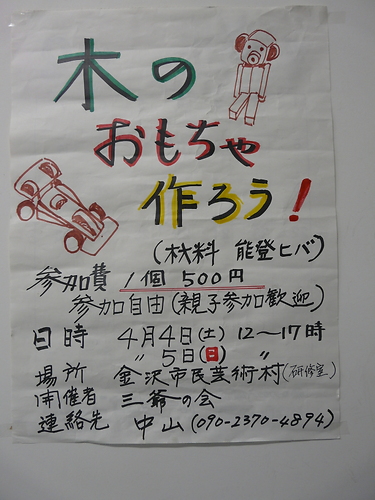 木の
おもちゃ
作ろう!
(材料 能登ヒバ)
参加費 1個 500円
参加自由(親子参加歓迎)
日時 4月4日(土) 12〜17時
〃 5日(日) 〃
場所 金沢市民芸術村(研修室)
開催者 三爺の会
連絡先 中山(090-2370-4894)